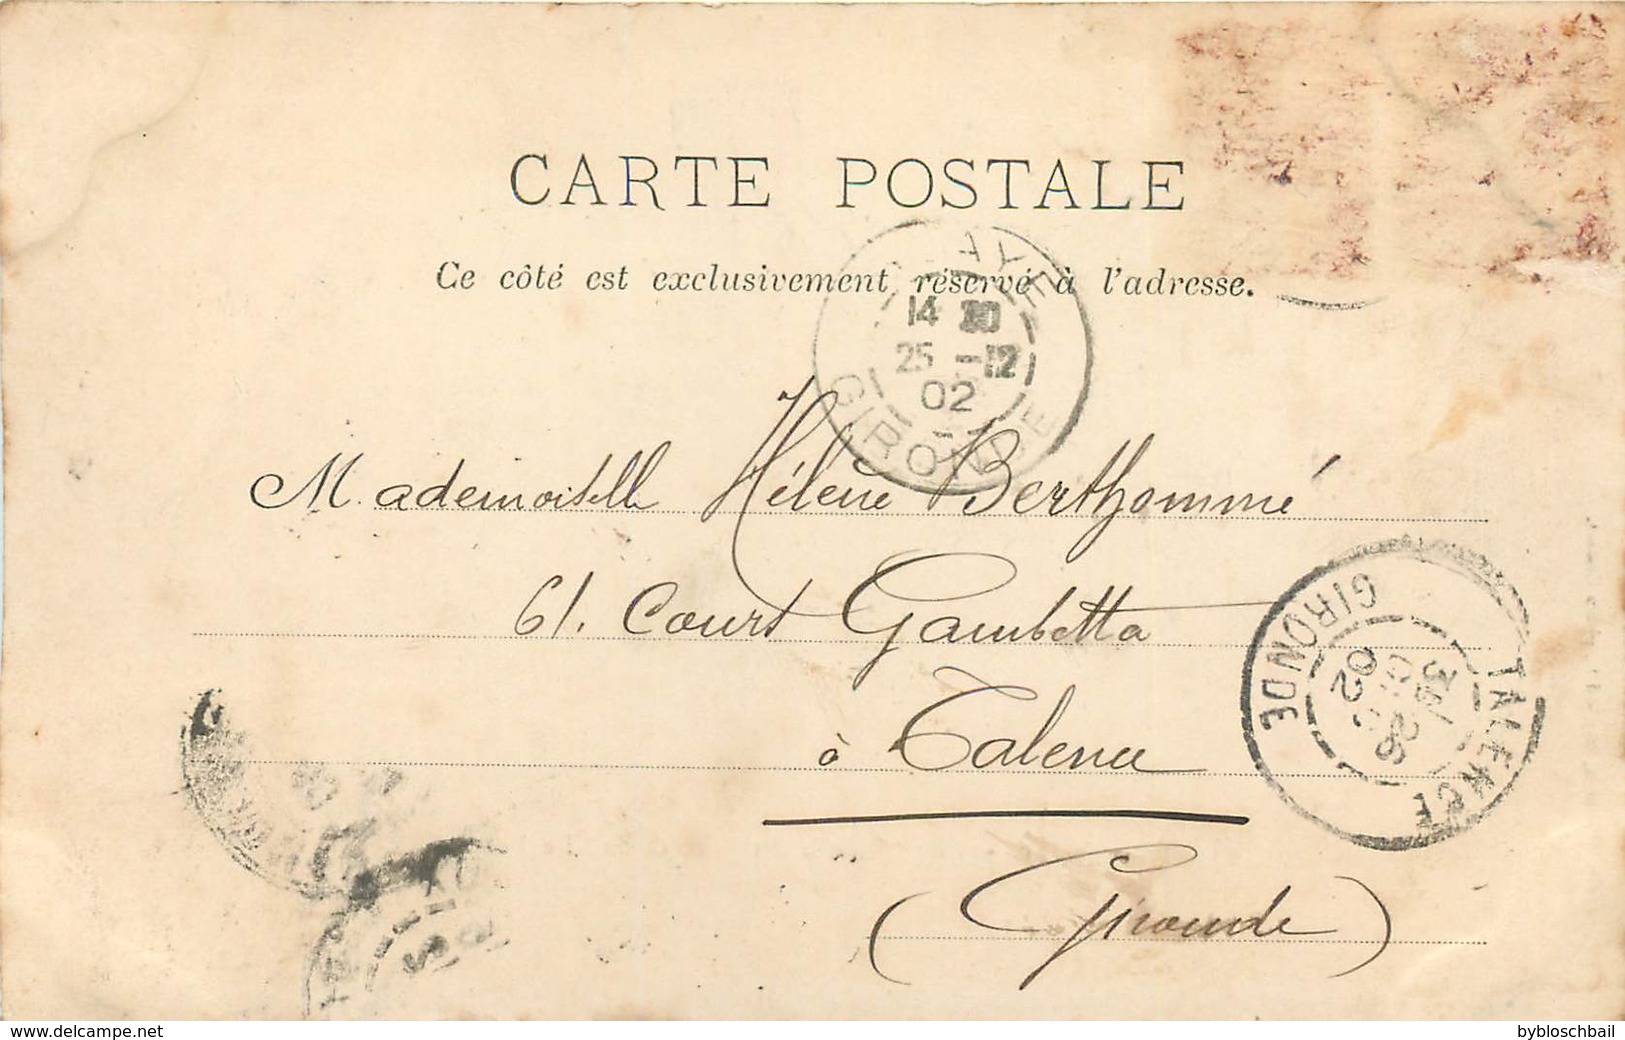 CARTE POSTALE
Ce côté est exclusivement réservé à l'adresse.
14 30
25 -12
02
GIRONDE
Mademoiselle Hélène Berthommé
61. Court Gambetta
à Talence
(Gironde)
TALENCE
GIRONDE
02
www.delcampe.net
bybloschbail